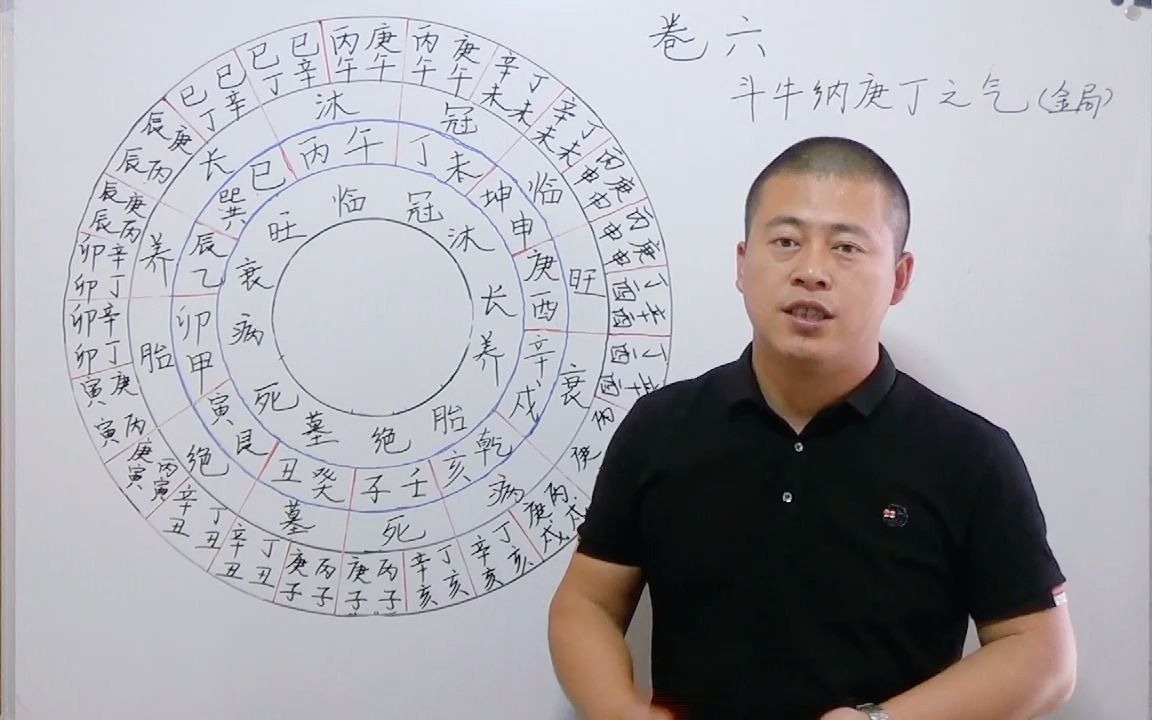 卷六
斗牛纳庚丁之气(金局)
丙午 庚午
丙午 庚午
辛未 丁未
辛未 丁未
丙申 庚申
丙申 庚申
丁酉 辛酉
丁酉 辛酉
丙
庚戌 丙戌
辛亥 丁亥
辛亥 丁亥
庚子 丙子
庚子 丙子
辛丑 丁丑
辛丑 丁丑
庚寅 丙寅
庚寅 丙寅
辛卯 丁卯
辛卯 丁卯
庚辰 丙辰
庚辰 丙辰
丁巳 辛巳
丁巳 辛巳
沐
冠
临
旺
衰
病
死
墓
绝
胎
养
长
丙午
丁未
坤申
庚酉
辛戌
乾亥
壬子
癸丑
艮寅
甲卯
乙辰
巽巳
临
冠
沐
长
养
胎
绝
墓
死
病
衰
旺